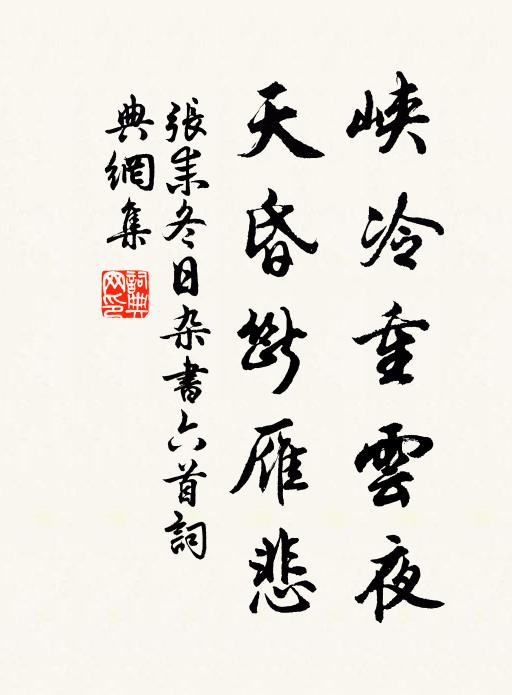 峡冷重雲夜
天昏斷雁悲
張耒冬日杂書六首詞
典網集
詞典
网印